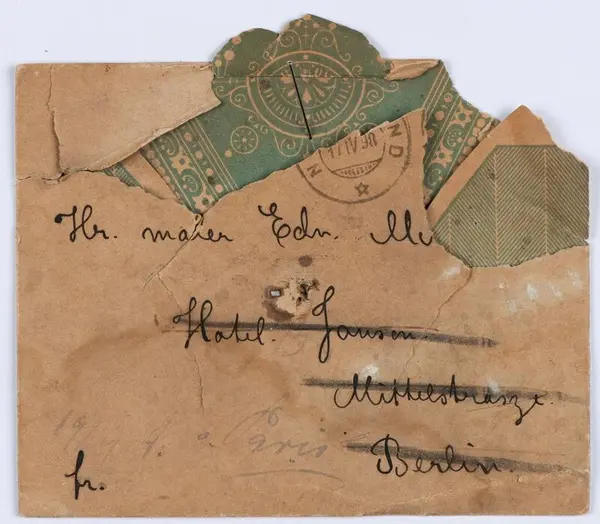 Hr. maler Edv. Mu
Hotel. Jansen.
Mittelstrasze.
Berlin.
fr.